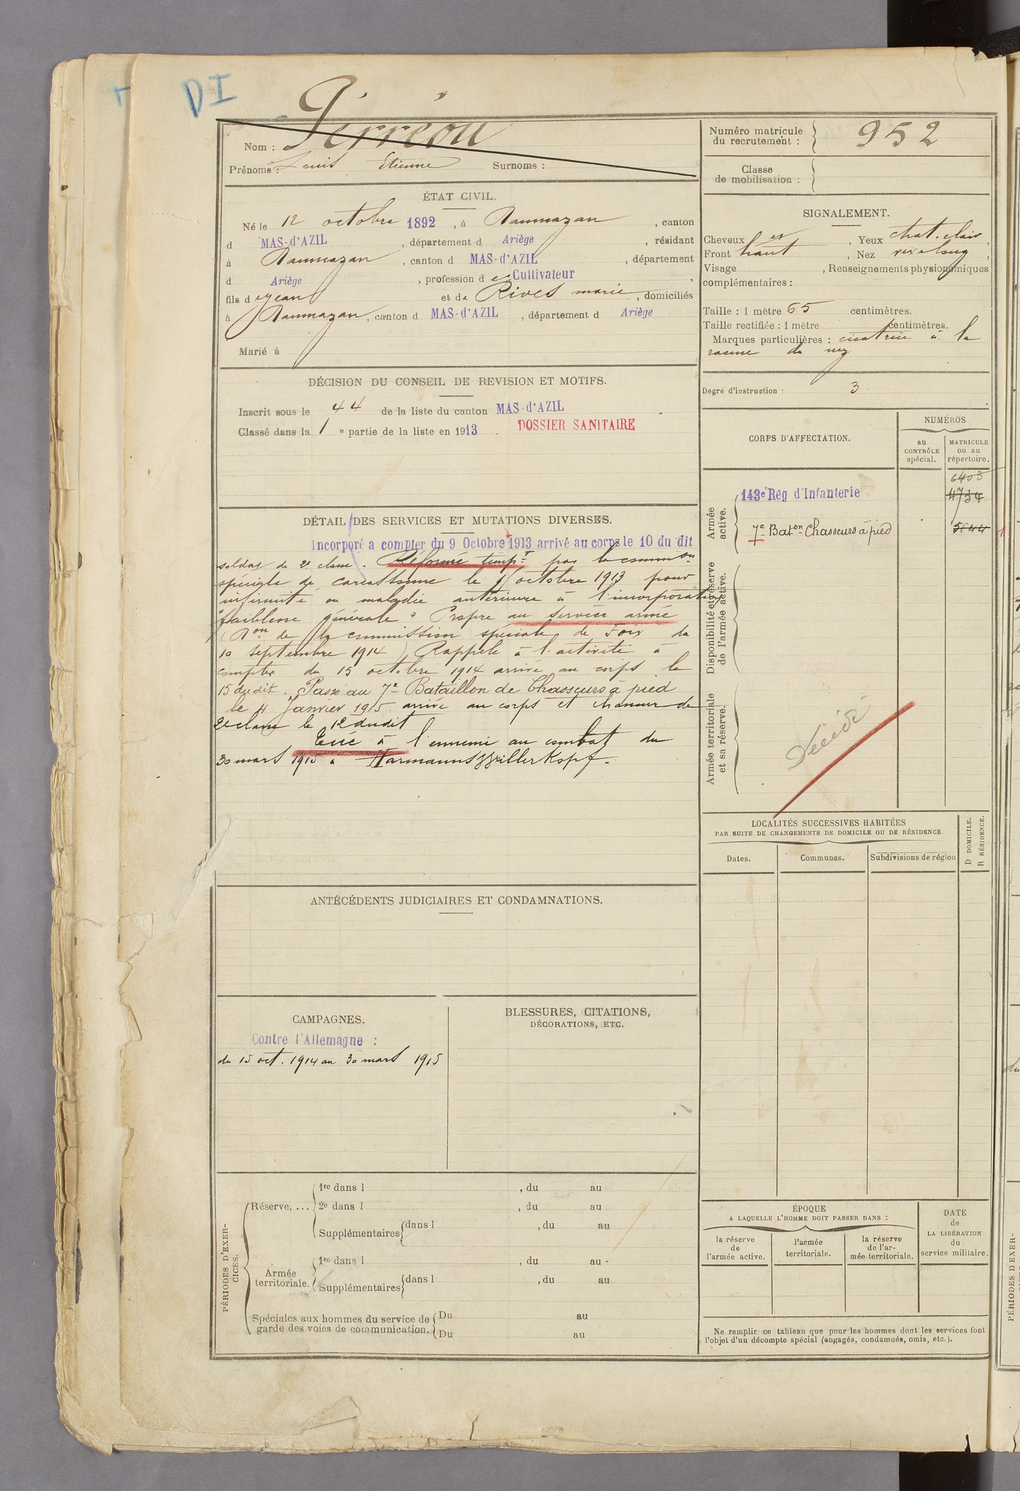 DI
Nom : Perréou
Prénoms : Louis Etienne Surnoms :
Numéro matricule du recrutement : 952
Classe de mobilisation :
ÉTAT CIVIL.
Né le 12 octobre 1892, à Daumazan, canton
d MAS-d'AZIL, département d Ariège, résidant
à Daumazan, canton d MAS-d'AZIL, département
d Ariège, profession de Cultivateur
fils de Jean et de Rives marie, domiciliés
à Daumazan, canton d MAS-d'AZIL, département d Ariège
Marié à
SIGNALEMENT.
Cheveux, Yeux chat. clair,
Front haut, Nez
Visage, Renseignements physionomiques
complémentaires :
Taille : 1 mètre 65 centimètres.
Taille rectifiée : 1 mètre centimètres.
Marques particulières : cicatrice à la
racine du nez
Degré d'instruction : 3
DÉCISION DU CONSEIL DE REVISION ET MOTIFS.
Inscrit sous le 44 de la liste du canton MAS-d'AZIL
Classé dans la 1e partie de la liste en 1913. DOSSIER SANITAIRE
DÉTAIL DES SERVICES ET MUTATIONS DIVERSES.
Incorporé a compter du 9 Octobre 1913 arrivé au corps le 10 du dit
soldat de 2e classe. Réformé tempre par la common
spéciale de carcassonne le octobre 1913 pour
infirmité ou maladie antérieure à l'incorporation
"faiblesse générale" Propre au service armé
(Don de la commission spéciale de Foix du
10 septembre 1914) Rappelé à l'activité à
compter du 15 octobre 1914 arrivé au corps le
15 du dit. Passé au 7e Bataillon de Chasseurs à pied
le 11 Janvier 1915 arrivé au corps et chasseur de
2e classe le 12 du dit
Tué à l'ennemi au combat du
30 mars 1915 à Harmannszwillerkopf.
CORPS D'AFFECTATION.
NUMÉROS
au CONTRÔLE spécial.
MATRICULE ou au répertoire.
Armée active.
6403
143e Rég d'Infanterie 4734
7e Baton Chasseurs à pied 5644
Disponibilité et réserve de l'armée active.
Armée territoriale et sa réserve.
Décédé
LOCALITÉS SUCCESSIVES HABITÉES
PAR SUITE DE CHANGEMENTS DE DOMICILE OU DE RÉSIDENCE
Dates.
Communes.
Subdivisions de région
D DOMICILE.
R RÉSIDENCE.
ANTÉCÉDENTS JUDICIAIRES ET CONDAMNATIONS.
CAMPAGNES.
Contre l'Allemagne :
du 15 oct. 1914 au 30 mars 1915
BLESSURES, CITATIONS,
DÉCORATIONS, ETC.
PÉRIODES D'EXERCICES.
Réserve, .... 1re dans l , du au
2e dans l , du au
Supplémentaires dans l , du au
Armée territoriale. 1re dans l , du au
Supplémentaires dans l , du au
Spéciales aux hommes du service de garde des voies de communication. Du au
Du au
ÉPOQUE
A LAQUELLE L'HOMME DOIT PASSER DANS :
la réserve de l'armée active.
l'armée territoriale.
la réserve de l'armée territoriale.
DATE de LA LIBÉRATION du service militaire.
Ne remplir ce tableau que pour les hommes dont les services font
l'objet d'un décompte spécial (engagés, condamnés, omis, etc.).
PÉRIODES D'EXER-